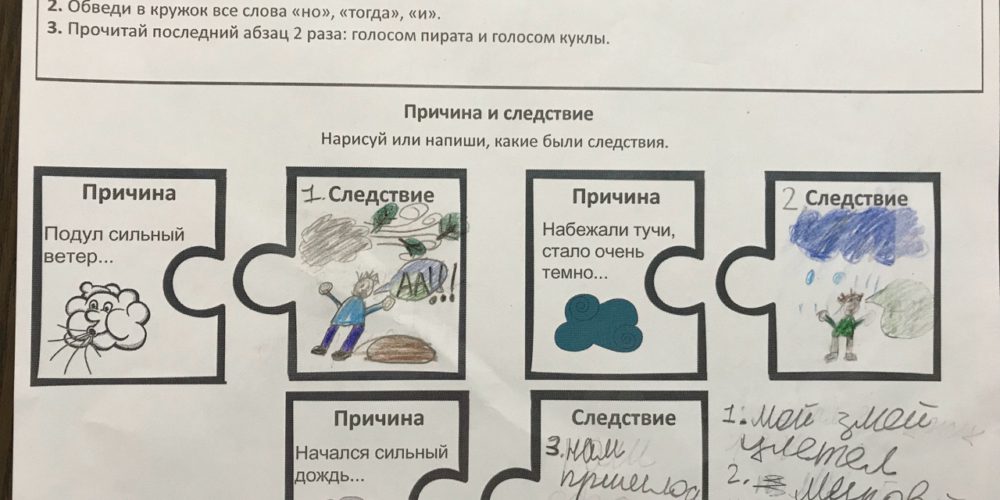 2. Обведи в кружок все слова «но», «тогда», «и».
3. Прочитай последний абзац 2 раза: голосом пирата и голосом куклы.
Причина и следствие
Нарисуй или напиши, какие были следствия.
Причина
Подул сильный
ветер...
1. Следствие
АА!!!
Причина
Набежали тучи,
стало очень
темно...
2 Следствие
Причина
Начался сильный
дождь...
Следствие
3. нам
пришлос
1. мой змой
улетел
2.